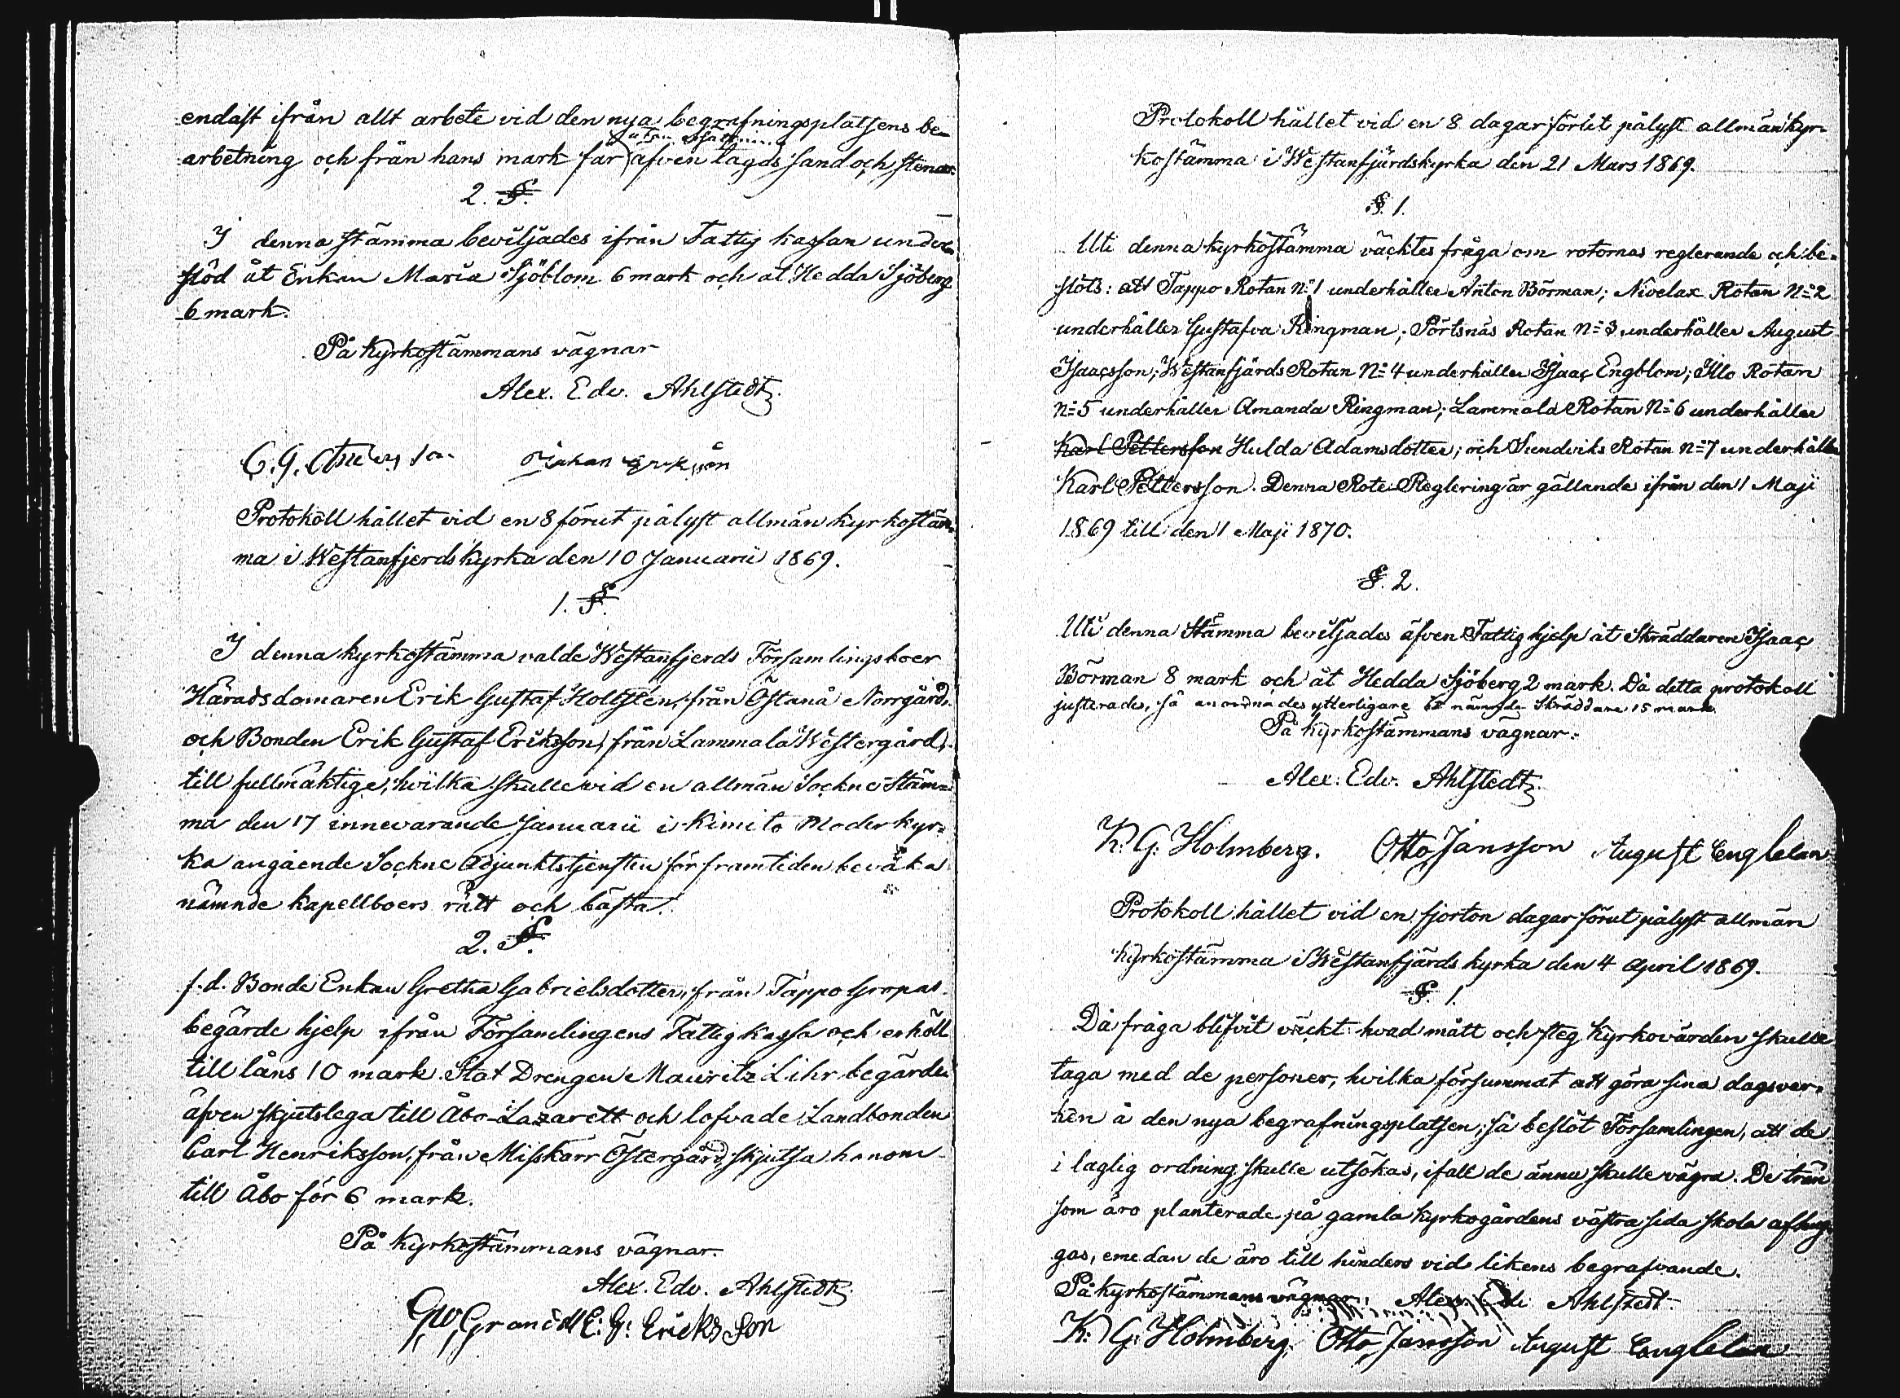 endast ifrån allt arbete vid den nya begrafningsplatsens be-
utan ersättning
arbetning och från hans mark får äfven tagas sand och stenar.
2. §.
I denna stämma beviljades ifrån Fattig kassan under-
stöd åt Enkan Maria Sjöblom 6 mark och åt Hedda Sjöberg
6 mark.
På Kyrkostämmans vägnar
Alex. Edv. Ahlstedt.
C. G. Johan Eriksson
Protokoll hållet vid en 8 förut pålyst allmän kyrkostäm-
ma i Westanfjerds Kyrka den 10 Januarii 1869.
1. §.
I denna kyrkostämma valde Westanfjerds Församlingsboer
Häradsdomaren Erik Gustaf Holtstén, från Östanå Norrgård,
och Bonden Erik Gustaf Eriksson, från Lammala Westergård,
till fullmäktige, hvilka skulle vid en allmän Sockne Stäm-
ma den 17 innevarande Januarii i Kimito Moderkyr-
ka angående Sockne Adjunktstjensten för framtiden bevaka
nämnde kapellboers rätt och bästa.
2. §.
f.d. Bonde Enkan Gretha Gabrielsdotter, från Tappo Gropas
begärde hjelp ifrån Församlingens Fattigkassa och erhöll
till låns 10 mark. Stat Drengen Mauritz Lihr begärde
äfven skjutslega till Åbo Lazarett och lofvade Landbonden
Carl Henriksson, från Misskärr Östergård, skjutsa honom
till Åbo för 6 mark.
På Kyrkostämmans vägnar.
Alex. Edv. Ahlstedt
GW Granith E. G. Ericksson
Protokoll hållet vid en 8 dagar förut pålyst allmän kyr-
kostämma i Westanfjärds kyrka den 21 Mars 1869.
§. 1.
Uti denna kyrkostämma väcktes fråga om rotornas reglerande och be-
slöts: att Tappo Rotan N:o 1 underhåller Anton Börman; Nivelax Rotan N:o 2
underhåller Gustafva Ringman; Pörtsnäs Rotan N:o 3 underhåller August
Isaacsson; Westanfjärds Rotan N:o 4 underhåller Isaac Engblom; Illo Rotan
N:o 5 underhåller Amanda Ringman; Lammala Rotan N:o 6 underhåller
Karl Pettersson Hulda Adamsdotter; och Sundviks Rotan N:o 7 underhåller
Karl Pettersson. Denna Rote Reglering är gällande ifrån den 1 Maji
1869 till den 1 Maji 1870.
§. 2.
Uti denna Stämma beviljades äfven Fattig hjelp åt Skräddaren Isaac
Börman 8 mark och åt Hedda Sjöberg 2 mark. Då detta protokoll
justerades, så anordnades ytterligare åt nämnde Skräddare 15 mark.
På kyrkostämmans vägnar:
Alex. Edv. Ahlstedt.
K. G. Holmberg. Otto Jansson August Englelan
Protokoll hållet vid en fjorton dagar förut pålyst allmän
kyrkostämma i Westanfjärds kyrka den 4 April 1869.
§. 1.
Då fråga blifvit väckt: hvad mått och steg Kyrkovärden skulle
taga med de personer, hvilka försummat att göra sina dagsver-
ken å den nya begrafningsplatsen, så beslöt Församlingen, att de
i laglig ordning skulle utsökas, ifall de ännu skulle vägra. De trän
som äro planterade på gamla kyrkogårdens västra sida skola afhug-
gas, emedan de äro till hinders vid likens begrafvande.
På kyrkostämmans vägnar: Alex. Edv. Ahlstedt.
K. G. Holmberg. Otto Jansson August Englelan